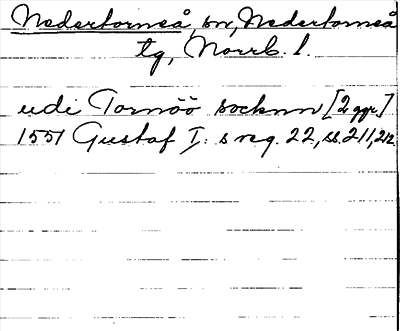 Nedertorneå, sn, Nedertorneå
tg, Norrb. l.
udi Tornöö socknn [2 ggr]
1551 Gustaf I: s reg. 22, ss. 211, 212